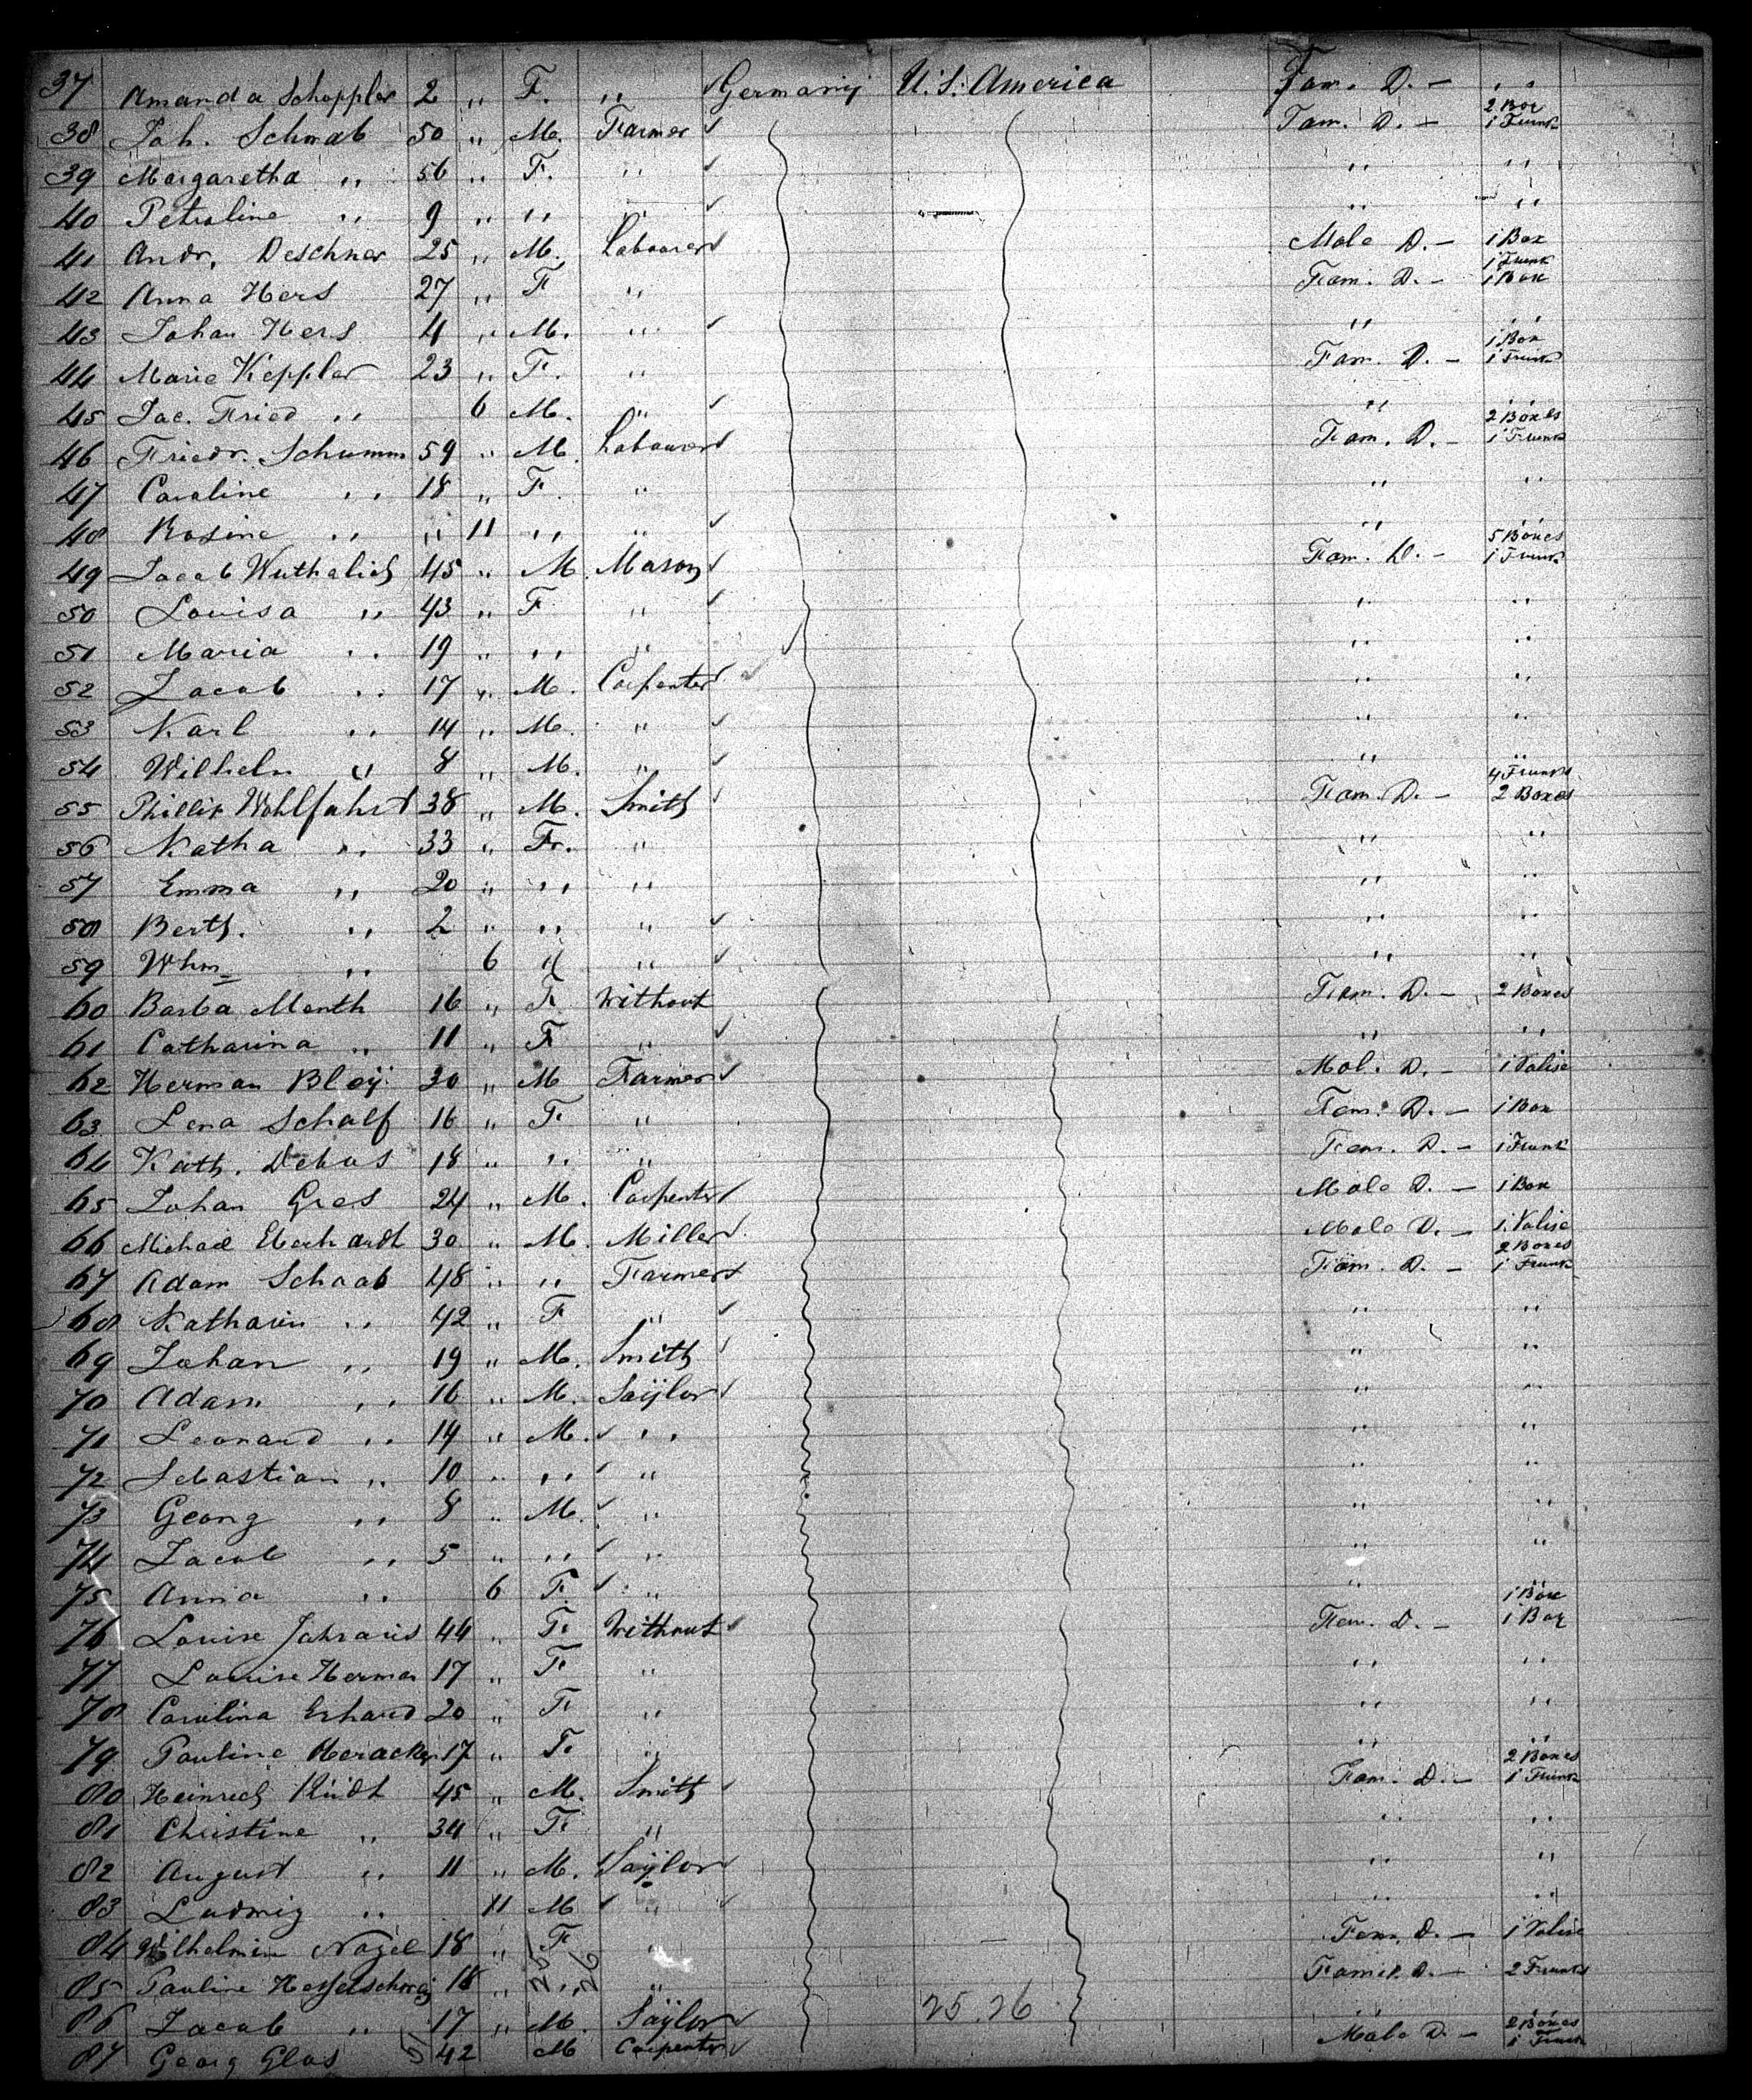 37 Amanda Schoppler 2 " F. " Germany U.S. America Fam. D. — "
38 Joh. Schwab 50 " M. Farmer Fam. D. — 2 Box 1 Trunk
39 Margaretha " 56 " F. " " "
40 Petroline " 9 " " " " "
41 Andr. Deschner 25 " M. Labourer Male D. — 1 Box
42 Anna Hers 27 " F " Fam. D. — 1 Trunk 1 Box
43 Johan Hers 4 " M. " " "
44 Marie Keppler 23 " F. " Fam. D. — 1 Box 1 Trunk
45 Jac. Fried " 6 M. " " "
46 Friedr. Schumm 59 " M. Labourer Fam. D. — 2 Boxes 1 Trunk
47 Caroline " 18 " F. " " "
48 Rosine " " 11 " " " "
49 Jacob 45 " M. Mason Fam. D. — 5 Boxes 1 Trunk
50 Louisa " 43 " F. " " "
51 Maria " 19 " " " " "
52 Jacob " 17 " M. Carpenter " "
53 Karl " 14 " M. " " "
54 Wilhelm " 8 " M. " " "
55 Phillip Wohlfahrt 38 " M. Smith Fam. D. — 4 Trunks 2 Boxes
56 Katha " 33 " Fr. " " "
57 Emma " 20 " " " " "
58 Berth. " 2 " " " " "
59 Whm " 6 " " " "
60 Barba Menth 16 " F. Without Fam. D. — 2 Boxes
61 Catharina " 11 " F " " "
62 Herman Bley 30 " M Farmer Mal. D. — 1 Valise
63 Lena Schalf 16 " F. " Fem. D. — 1 Box
64 Kath. Debus 18 " " " Fem. D. — 1 Trunk
65 Johan Gres 24 " M. Carpenter Male D. — 1 Box
66 Michael Eberhardt 30 " M. Miller Male D. — 1 Valise
67 Adam Schaab 48 " " Farmer Fam. D. — 2 Boxes 1 Trunk
68 Katharin " 42 " F " " "
69 Johan " 19 " M. Smith " "
70 Adam " 16 " M. Saijlor " "
71 Leonard " 14 " M. " " "
72 Sebastian " 10 " " " " "
73 Georg " 8 " M. " " "
74 Jacob " 5 " " " " "
75 Anna " 6 F. " " "
76 Louise 44 " F. Without Fem. D. — 1 Box 1 Box
77 Louise Herman 17 " F " " "
78 Carolina Erhard 20 " F. " " "
79 Pauline 17 " F. " " "
80 Heinrich Rüdt 45 " M. Smith Fam. D. — 2 Boxes 1 Trunk
81 Christine " 34 " F. " " "
82 August " 11 " M. Saijlor " "
83 Ludwig " 11 M " " "
84 Wilhelmin Nagel 18 " F " Fem. D. — 1 Valise
85 Pauline 18 " " " D. — 2 Trunks
86 Jacob " 17 " M. Saijlor 25.26
87 Georg Glas 42 M Carpenter Male D. — 2 Boxes 1 Trunk